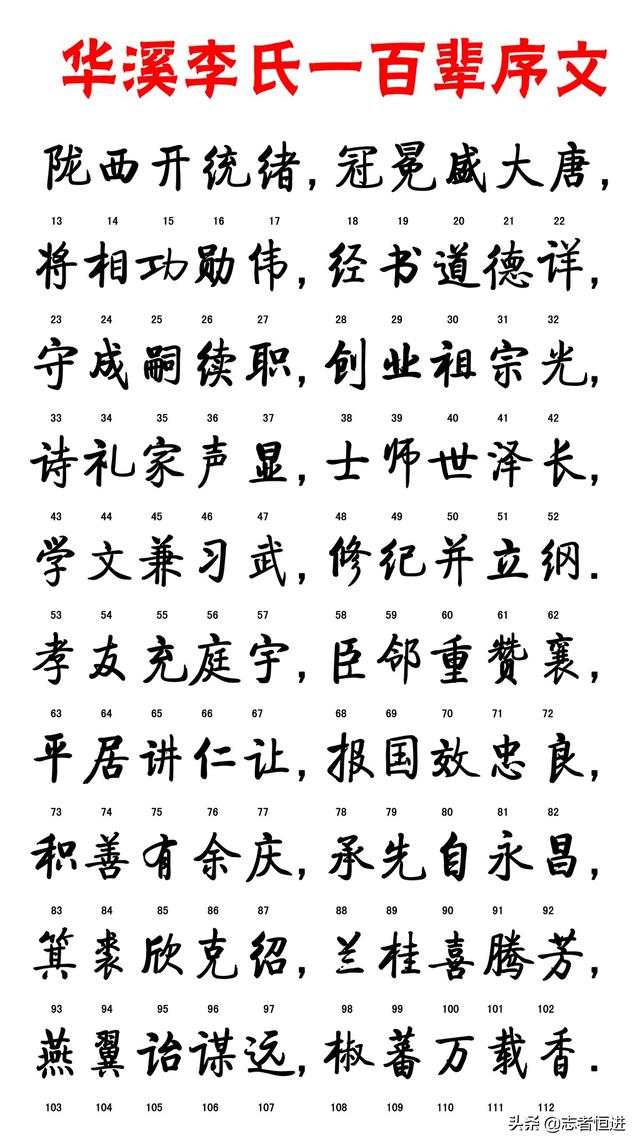 华溪李氏一百辈序文
陇西开统绪,冠冕盛大唐,
13 14 15 16 17 18 19 20 21 22
将相功勋伟,经书道德详,
23 24 25 26 27 28 29 30 31 32
守成嗣续职,创业祖宗光,
33 34 35 36 37 38 39 40 41 42
诗礼家声显,士师世泽长,
43 44 45 46 47 48 49 50 51 52
学文兼习武,修纪并立纲.
53 54 55 56 57 58 59 60 61 62
孝友充庭宇,臣邻重赞襄,
63 64 65 66 67 68 69 70 71 72
平居讲仁让,报国效忠良,
73 74 75 76 77 78 79 80 81 82
积善有余庆,承先自永昌,
83 84 85 86 87 88 89 90 91 92
箕裘欣克绍,兰桂喜腾芳,
93 94 95 96 97 98 99 100 101 102
燕翼诒谋远,椒蕃万载香.
103 104 105 106 107 108 109 110 111 112
头条 @志者恒进